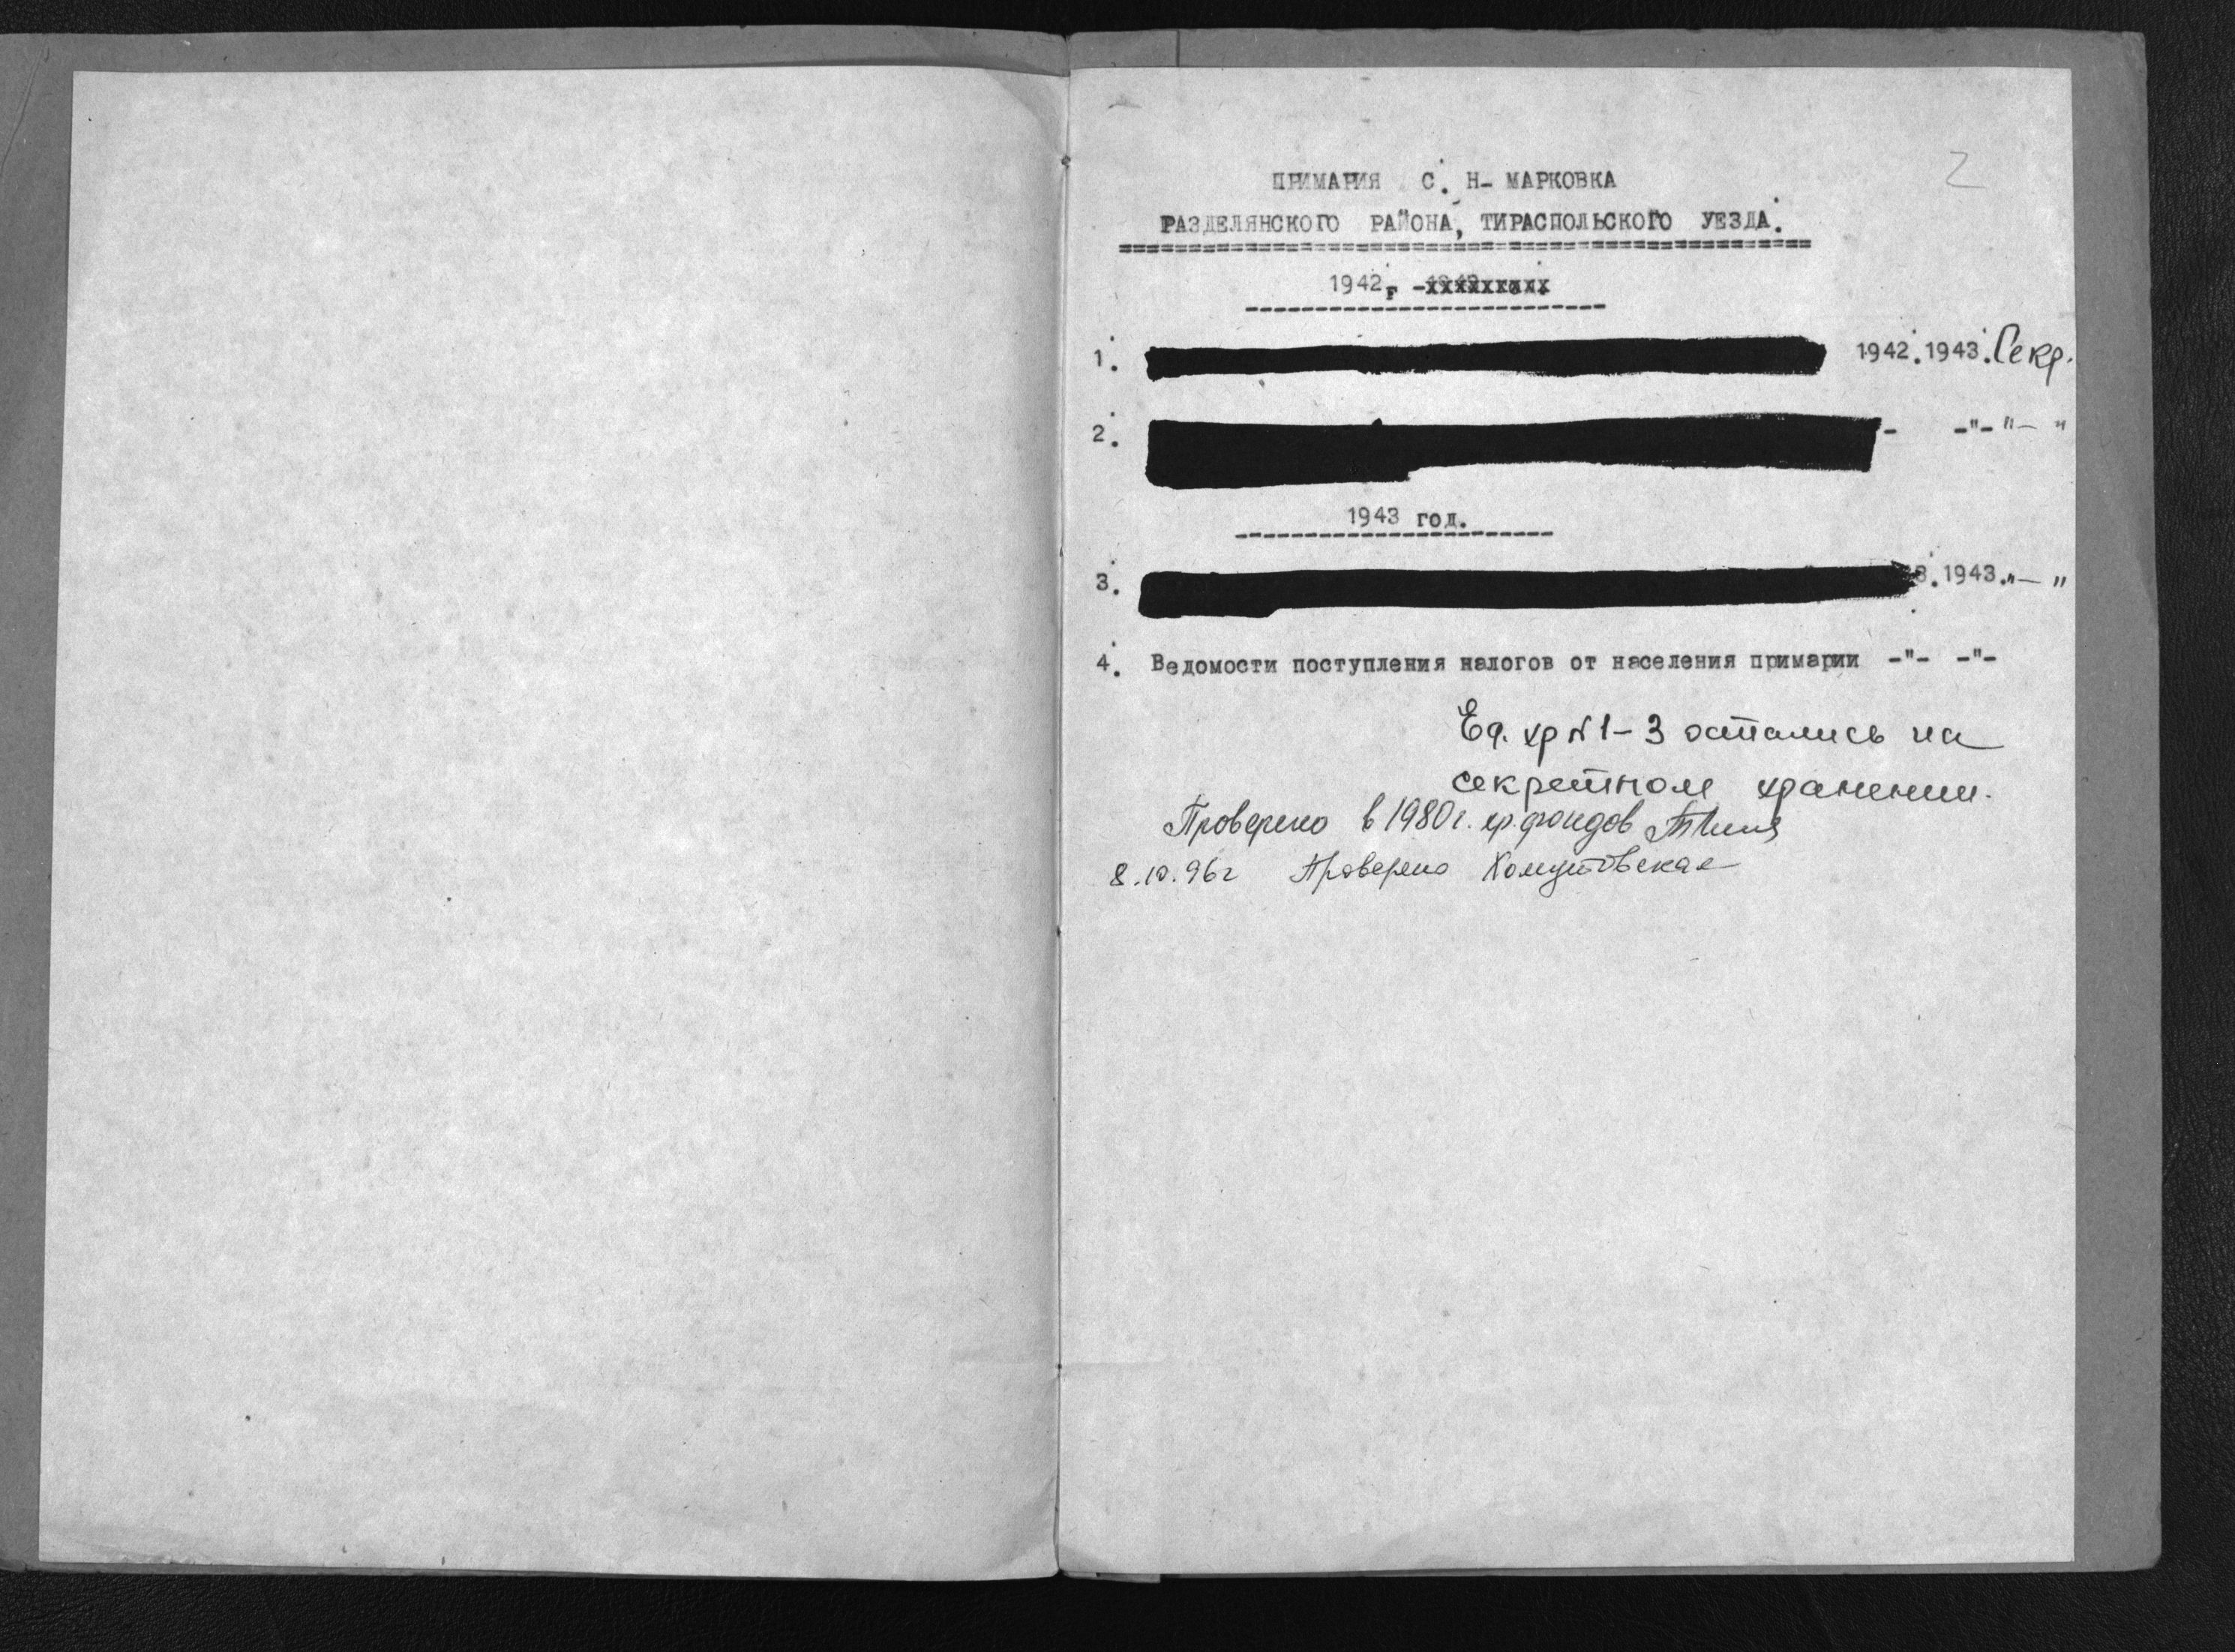 2
ПРИМАРИЯ С. Н- МАРКОВКА
РАЗДЕЛЯНСКОГО РАЙОНА, ТИРАСПОЛЬСКОГО УЕЗДА.
1942г
1. 1942.1943. Секр.
2. - -"- "— "
1943 год.
3. 3.1943. "— "
4. Ведомости поступления налогов от населения примарии -"- -"-
Ед. хр №1-3 остались на
секретном хранении.
Проверено в 1980г. хр. фондов
8.10.96г Проверено Хомутовская